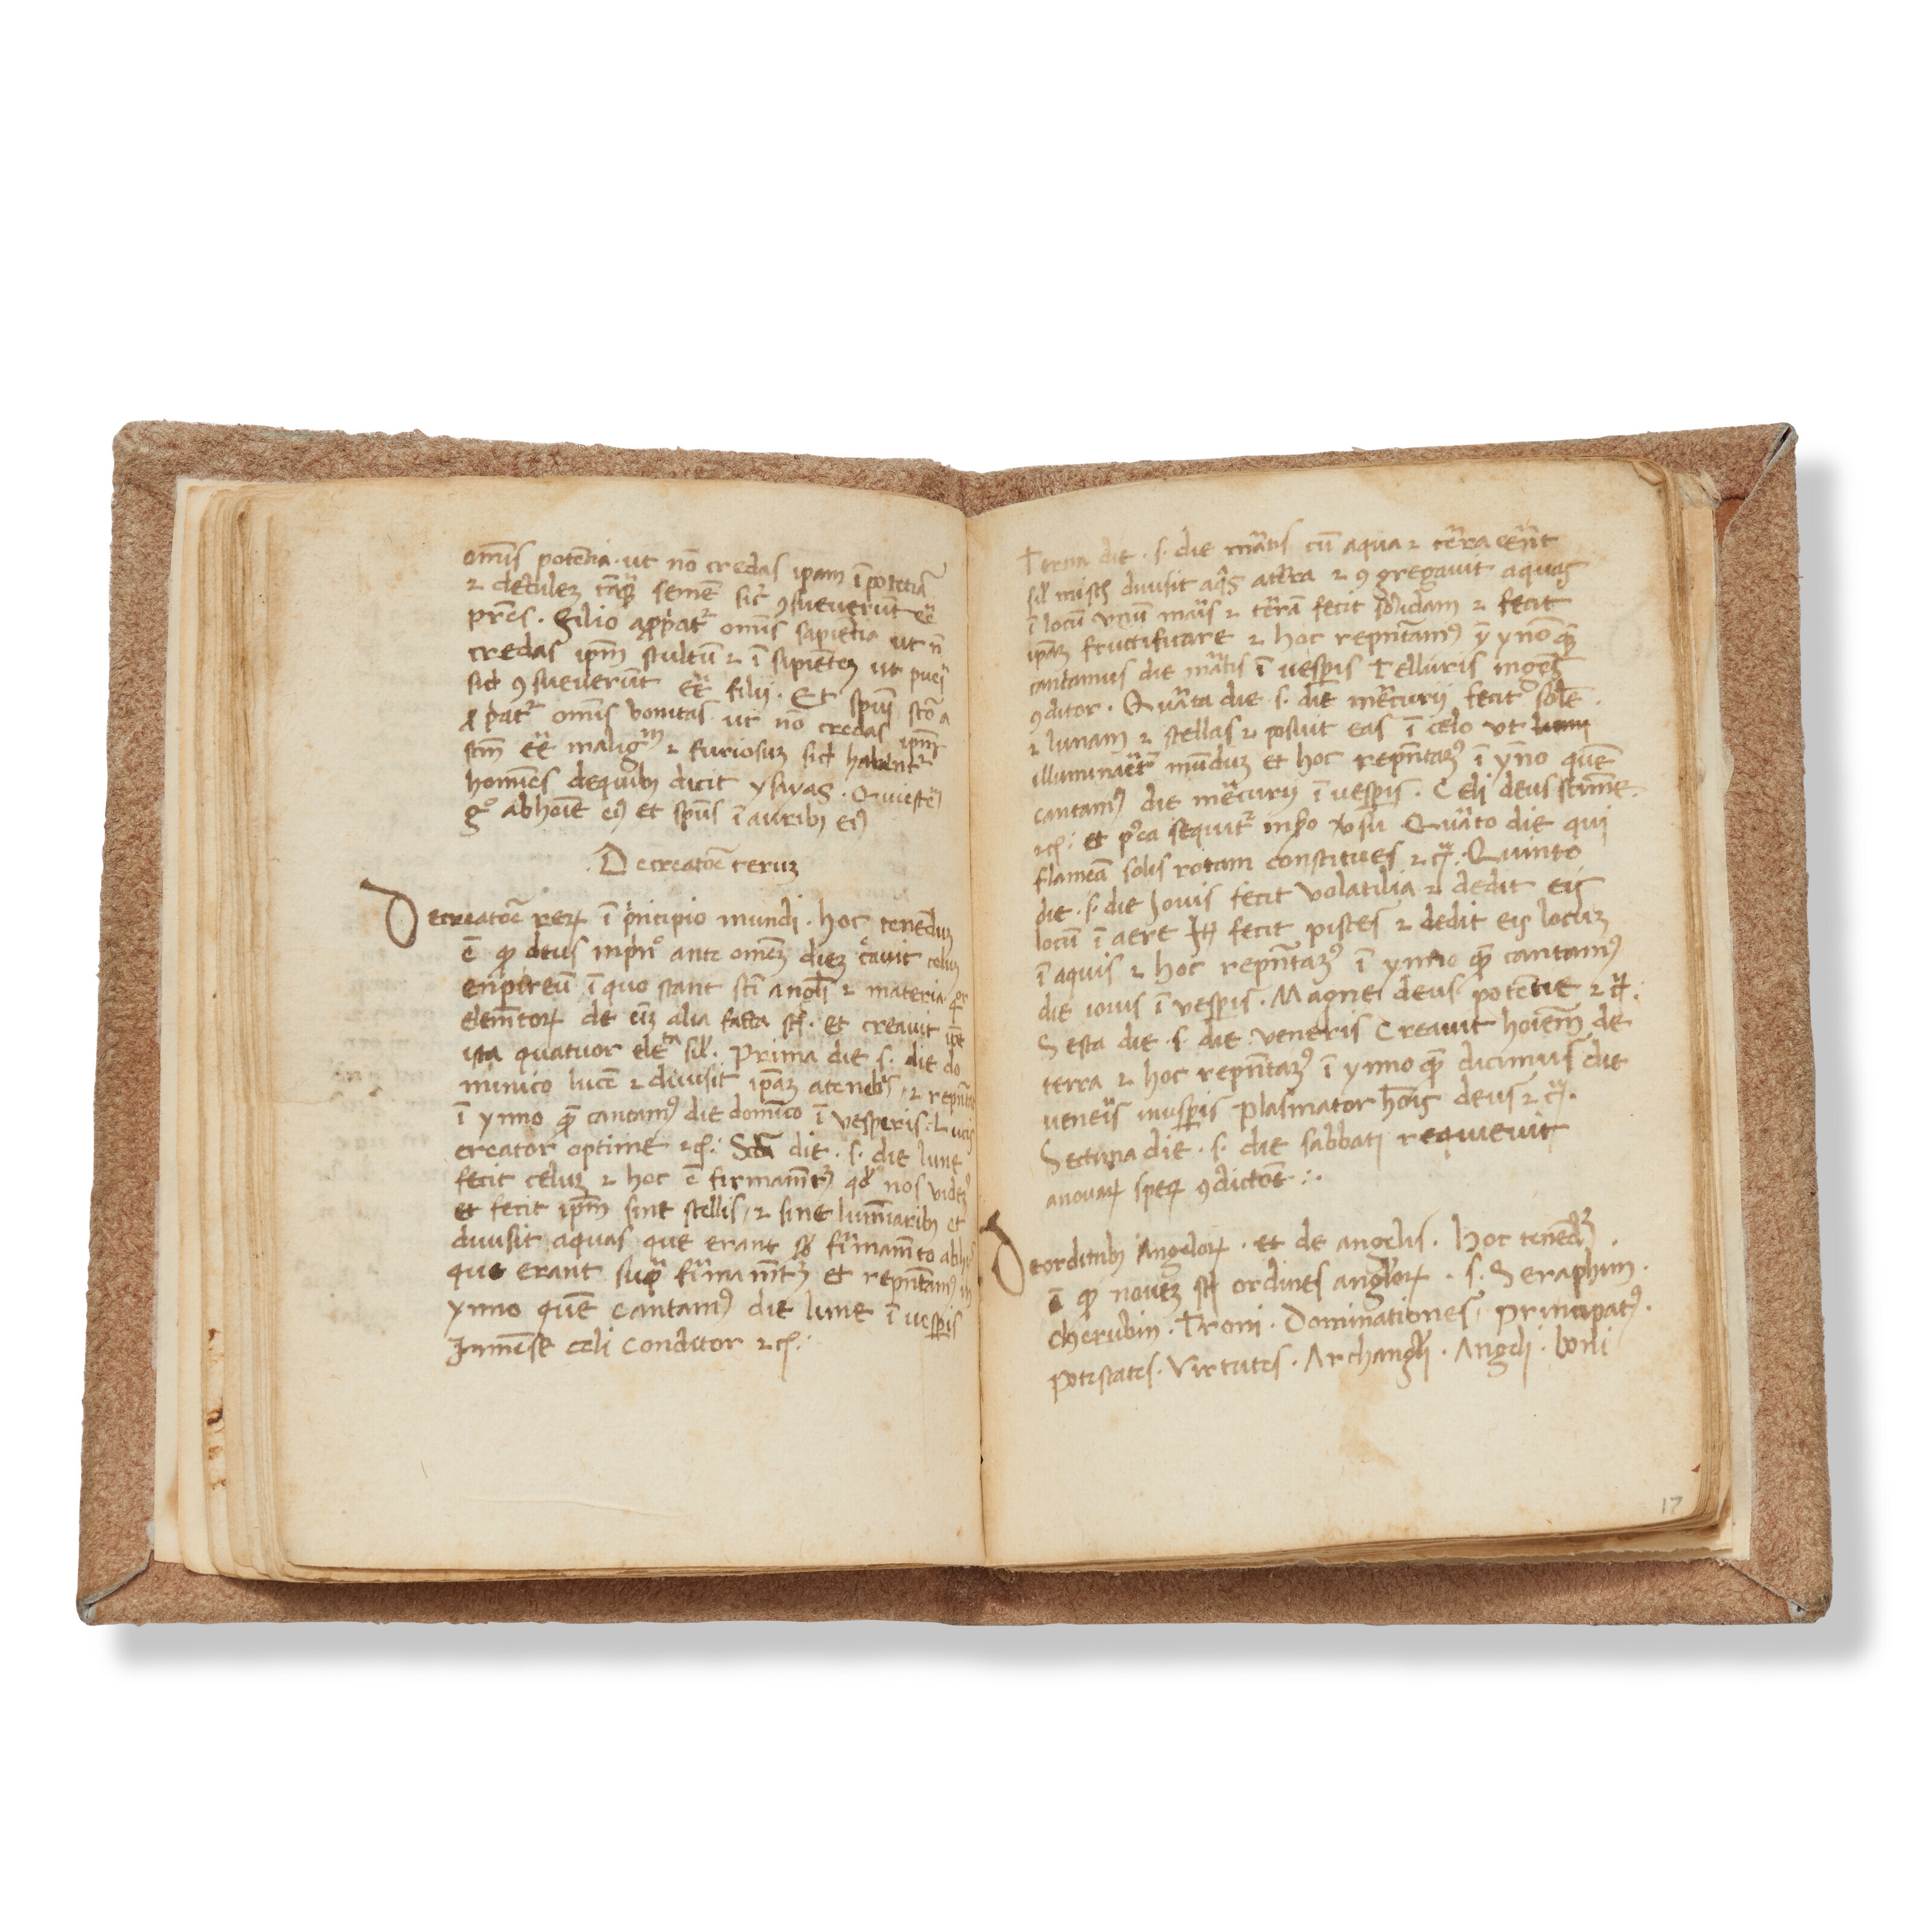 om̄is potētia · ut nō credas ipam ī potētiā
⁊ debilez tāq̄ȝ semē sic̄ ꝯsueuerūt eē
pr̄es . Filio aꝓpat᷑ om̄is sapiētia ut n̄
credas ip̄m stultū ⁊ ī sipiētez ut pueri
sic̄ ꝯsueuerūt eē filij . Et spūi sctō a
ꝓpat᷑ om̄is bonitas ut nō credas ipm̄
stm̄ eē malignum ⁊ furiosuz sic̄ habent᷑
homīes dequibꝰ dicit ysayas . Quiescite
gͦ abhoīe
et spūs ī auribꝰ eiꝰ
De creatoē reruz
De creatoē reꝝ ī principio mundi . hoc tenēduz
ē ꝙ deus inpn̄º ante omēz diez creauit celuz
enpireū ī quo stant sct̄i angl̄i ⁊ materia
elem̄toꝝ de cuiꝰ alia facta st̄ . et creauit
ista quatuor elēta sil̄ . Prima die . s . die do
minico lucē ⁊ diuisit ip̄az atenebris , ⁊ repn̄ta
ī ynno q̄ȝ cantamꝰ die domīco ī vesperis . Lucis
creator optime ⁊c̄ : Scd̄a die . s . die lune
fecit celuz ⁊ hoc ē firmam̄tuȝ qd̄ nos videmꝰ
et fecit ip̄m sine stellis , ⁊ sine lumīaribꝰ et
diuisit aquas que erant sb̄ firmam̄to abhijs
que erant supra firmam̄tȝ et repn̄tamꝰ in
ynno quē cantamꝰ die lune ī uesp̄is
Jnmēse celi conditor ⁊c̄ :
Terna die . s . die martis cū aqua ⁊ terra eēnt
sil̄ misti diuisit aq̄s aterra ⁊ ꝯgregauit aquas
ī locū vnū maris ⁊ terrā fecit solidam ⁊ fecit
ipaz fructificare ⁊ hoc repn̄tamꝰ ī ynno q̄ȝ
cantamus die martis ī uesp̄is Telluris ingēs
ꝯditor . Quarta die . s . die mercurij fecit solē .
⁊ lunam ⁊ stellas ⁊ posuit eas ī celo vt
illuminarēt mūduz et hoc repn̄tamꝰ ī yn̄o quē
cantamꝰ die mercurij ī uesp̄is . Celi deus sctīme .
⁊c̄ : et postea sequit᷑ in p̊o v̊su . Quarto die qui
flameā solis rotam constitues ⁊c̄ . Quinto
die . s . die Jouis fecit volatilia ⁊ dedit eis
locū ī aere Itē fecit pisces ⁊ dedit eis locuz
ī aquis ⁊ hoc repn̄tamꝰ ī ynno q̄ȝ cantamꝰ
die iouis ī uesp̄is . Magne deus potētie ⁊c̄ :
Sesta die . s . die veneris Creauit hoiēm de
terra ⁊ hoc repn̄tamꝰ ī ynno q̄ȝ dicimus die
ueneris inuesp̄is Plasmator hoīs deus ⁊c̄ .
Settima die . s . die sabbati requieuit
anouaꝝ speꝝ ꝯdictōe :.
De ordinibꝰ Angeloꝝ . et de angelis . hoc tenēdȝ .
ē ꝙ nouez st̄ ordines angl̄oꝝ . s . Seraphin .
cherubin . Troni . Dominationes . principatꝰ .
potestates . Virtutes . Archangl̄i . Angeli . boni
17